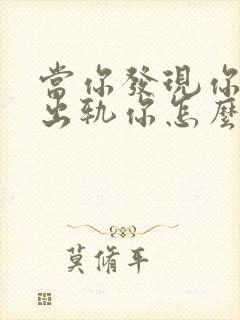 當你發現你
出軌你怎麼
莫脩平